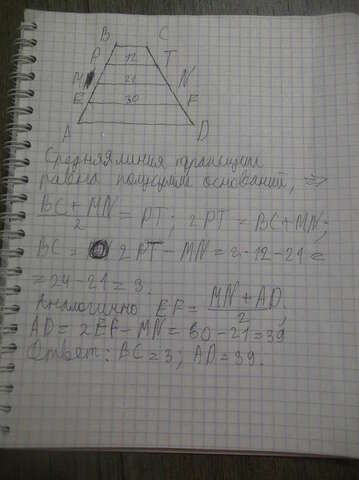 B C
P 12 T
M 21 N
E 30 F
A D
Средняя линия трапеции
равна полусумме оснований, =>
BC+MN/2 = PT; 2PT = BC+MN;
BC = 2PT-MN = 2·12-21 =
= 24-21 = 3.
Аналогично EF = MN+AD/2;
AD = 2EF-MN = 60-21=39
Ответ: BC=3; AD=39.